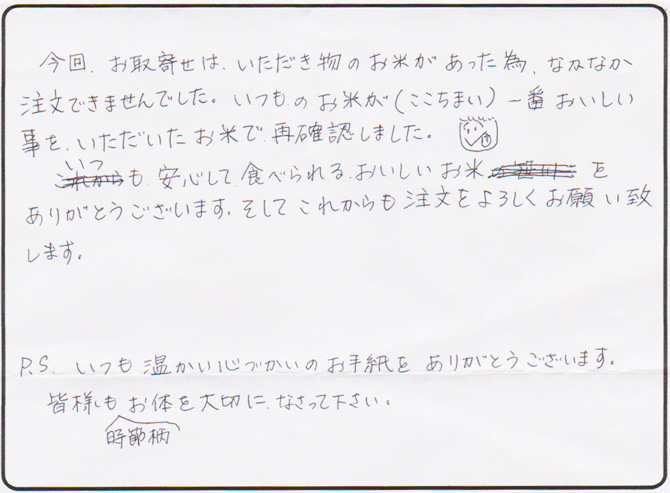 今回、お取寄せは、いただき物のお米があった為、なかなか
注文できませんでした。いつものお米が(ここちまい)一番おいしい
事を、いただいたお米で再確認しました。
いつ
も、安心して食べられる、おいしいお米を
ありがとうございます。そしてこれからも注文をよろしくお願い致
します。
P.S. いつも温かい心づかいのお手紙をありがとうございます。
皆様もお体を大切に、なさって下さい。
時節柄